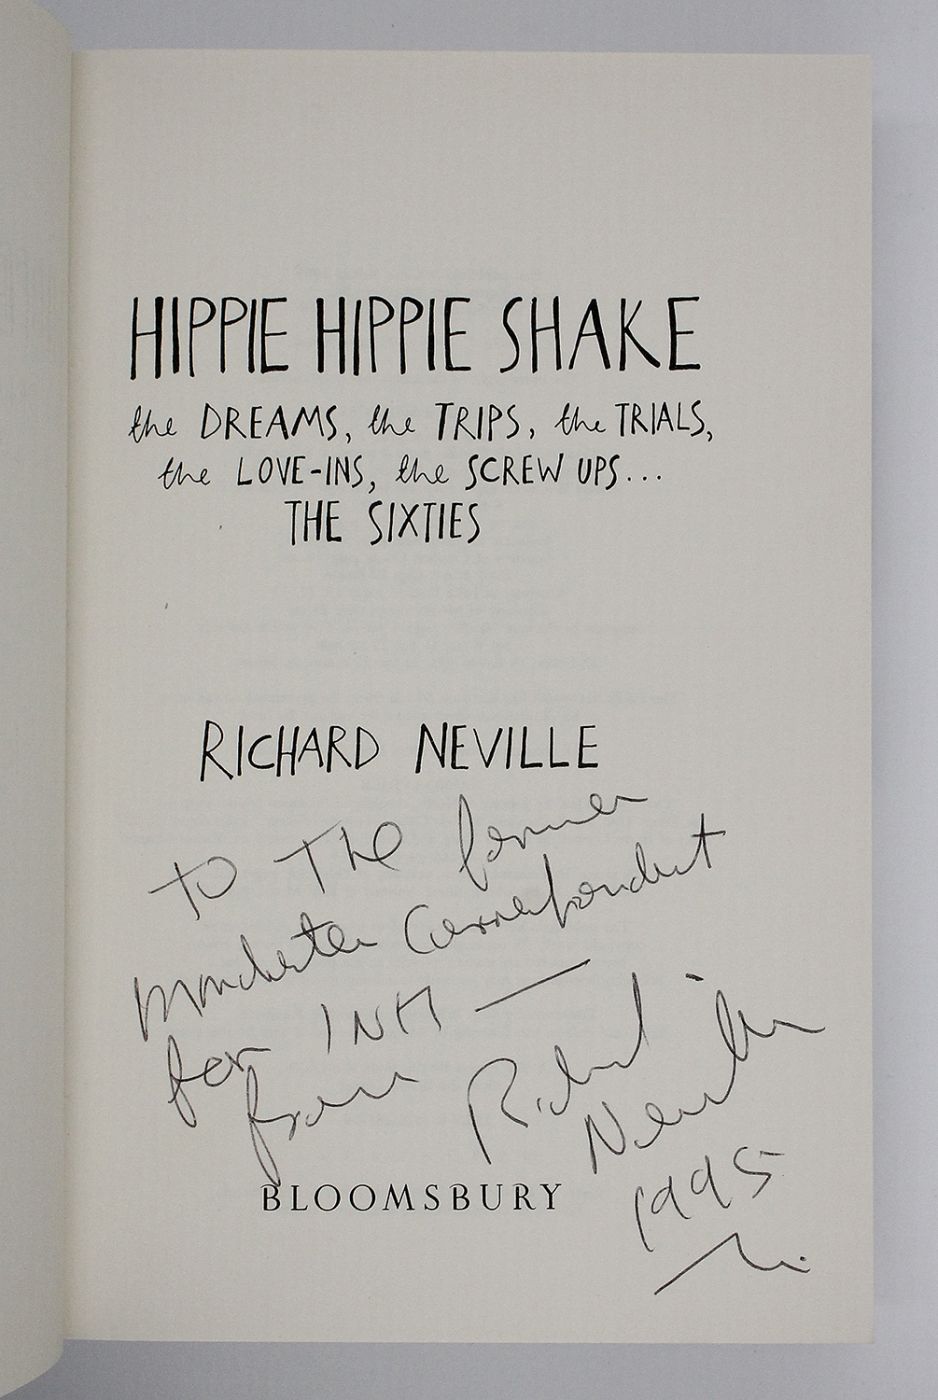 HIPPIE HIPPIE SHAKE
the DREAMS, the TRIPS, the TRIALS,
the LOVE-INS, the SCREW UPS...
THE SIXTIES
RICHARD NEVILLE
To The former
Manchester Correspondent
for
from Richard
Neville
1995
BLOOMSBURY